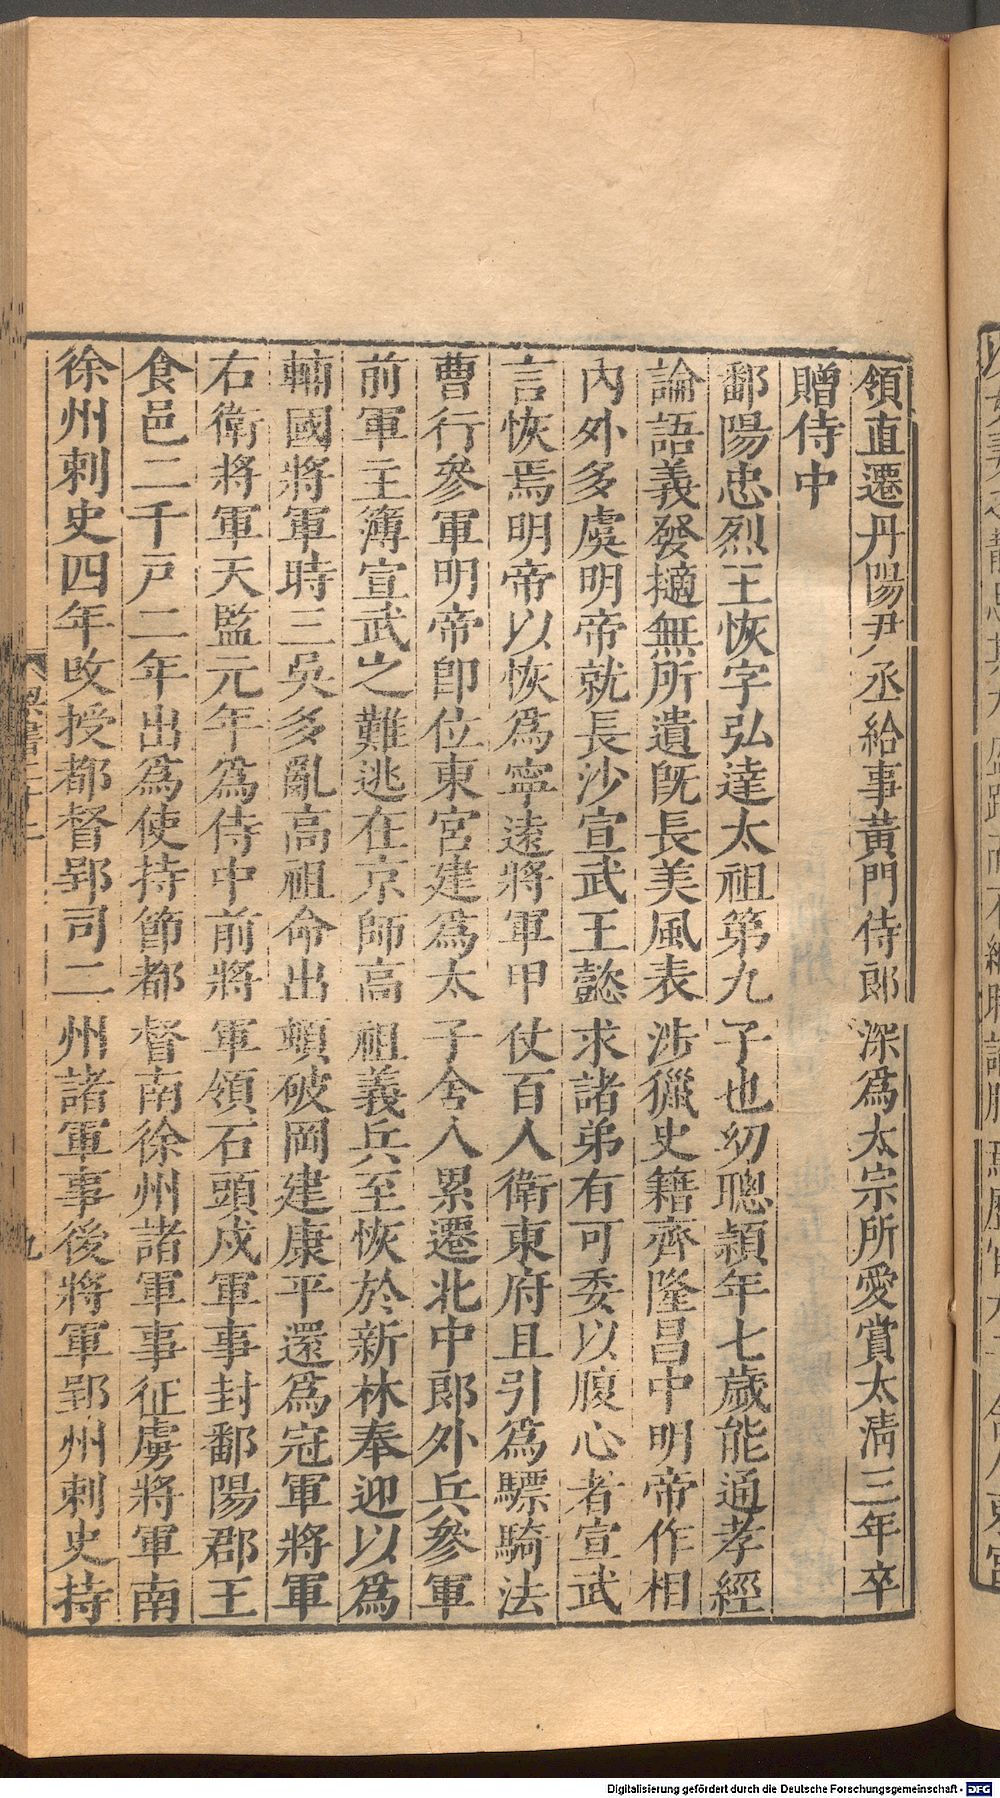 領直遷丹陽尹丞給事黃門侍郎深爲太宗所愛賞太淸三年卒
贈侍中
鄱陽忠烈王恢字弘達太祖第九子也幼聰穎年七歲能通孝經
論語義發擿無所遺旣長美風表涉獵史籍齊隆昌中明帝作相
內外多虞明帝就長沙宣武王懿求諸弟有可委以腹心者宣武
言恢焉明帝以恢爲寧遠將軍甲仗百人衛東府且引爲驃騎法
曹行參軍明帝卽位東宮建爲太子舍人累遷北中郎外兵參軍
前軍主簿宣武之難逃在京師高祖義兵至恢於新林奉迎以爲
輔國將軍時三吳多亂高祖命出頓破岡建康平還爲冠軍將軍
右衛將軍天監元年爲侍中前將軍領石頭戍軍事封鄱陽郡王
食邑二千戸二年出爲使持節都督南徐州諸軍事征虜將軍南
徐州刺史四年改授都督郢司二州諸軍事後將軍郢州刺史持
九
Digitalisierung gefördert durch die Deutsche Forschungsgemeinschaft - DFG